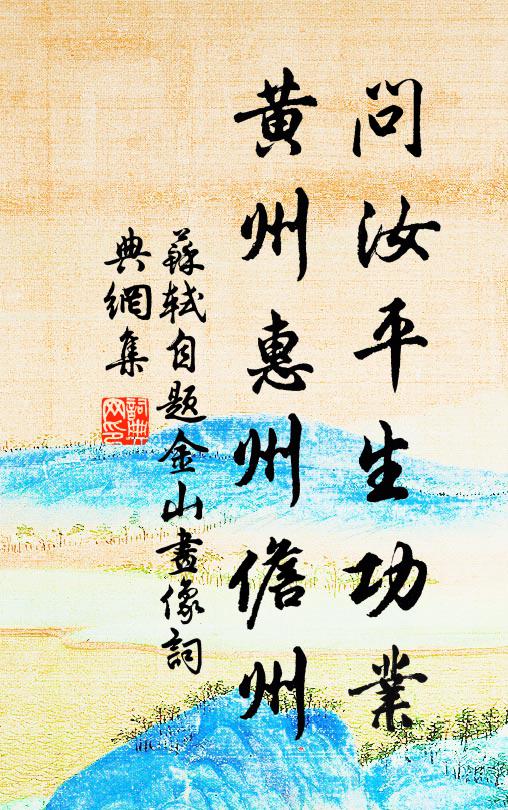 問汝平生功業
黃州惠州儋州
蘇軾自題金山畫像詞
典網集
詞典網印